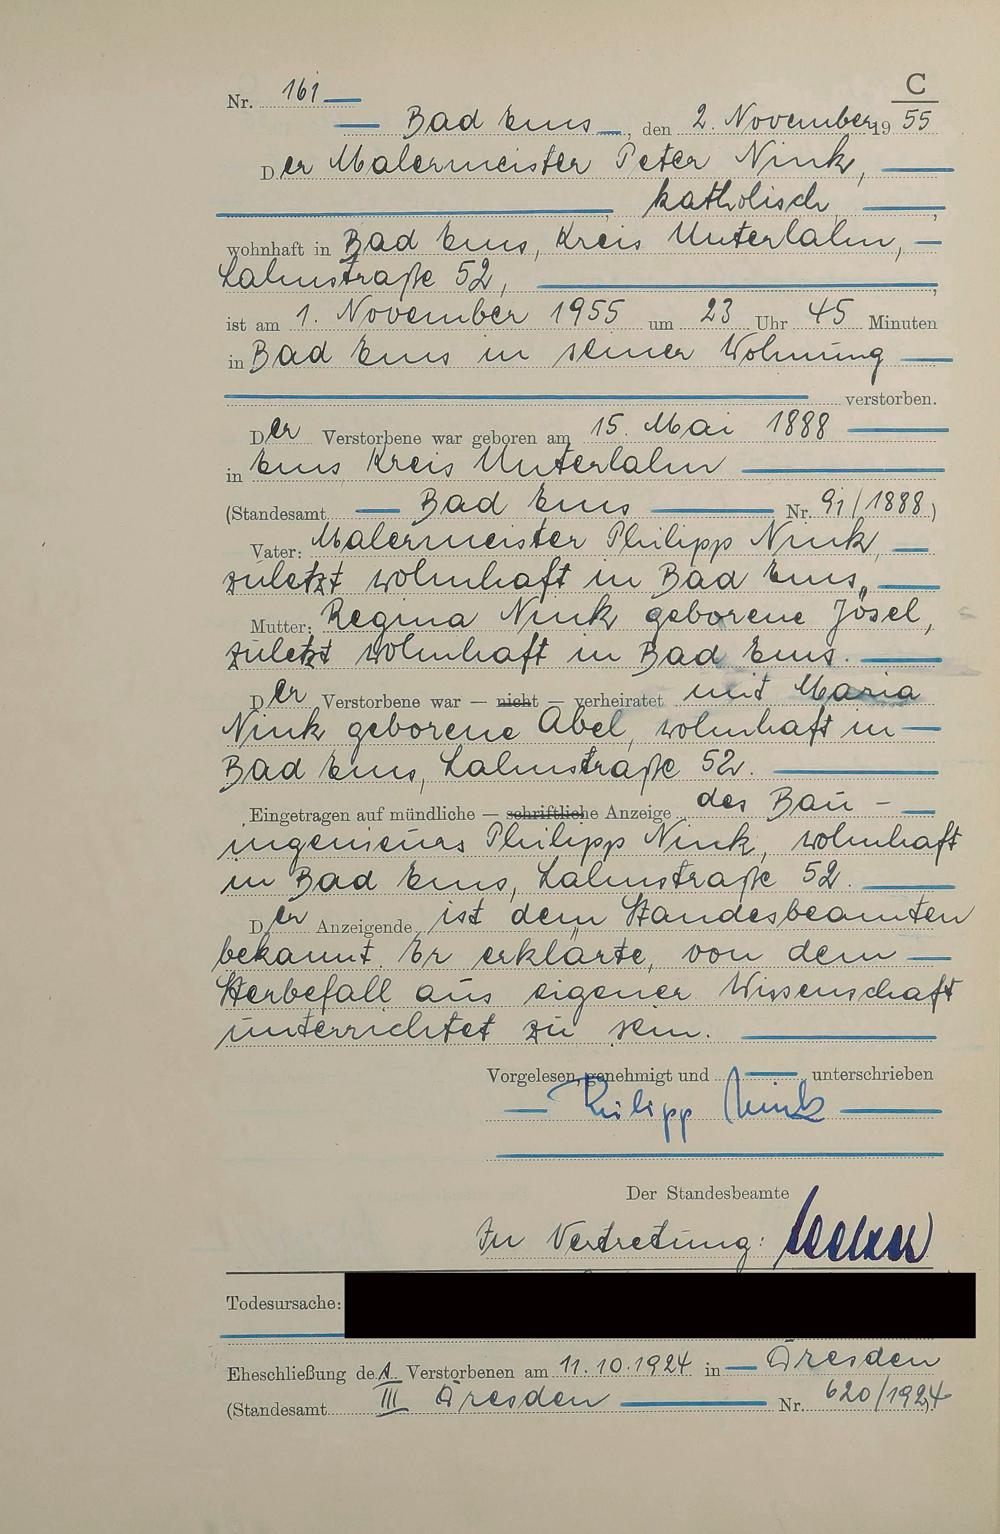 C
Nr. 161
Bad Ems, den 2. November 1955
Der Malermeister Peter Nink,
katholisch,
wohnhaft in Bad Ems, Kreis Unterlahn,
Lahnstraße 52,
ist am 1. November 1955 um 23 Uhr 45 Minuten
in Bad Ems in seiner Wohnung
verstorben.
Der Verstorbene war geboren am 15. Mai 1888
in Ems Kreis Unterlahn
(Standesamt Bad Ems Nr. 91/1888)
Vater: Malermeister Philipp Nink,
zuletzt wohnhaft in Bad Ems,
Mutter: Regina Nink geborene Jösel,
zuletzt wohnhaft in Bad Ems.
Der Verstorbene war — nicht — verheiratet mit Maria
Nink geborene Abel, wohnhaft in
Bad Ems, Lahnstraße 52.
Eingetragen auf mündliche — schriftliche Anzeige des Bau-
ingenieurs Philipp Nink, wohnhaft
in Bad Ems, Lahnstraße 52.
Der Anzeigende ist dem Standesbeamten
bekannt. Er erklärte, von dem
Sterbefall aus eigener Wissenschaft
unterrichtet zu sein.
Vorgelesen, genehmigt und unterschrieben
Philipp Nink
Der Standesbeamte
In Vertretung:
Todesursache:
Eheschließung des Verstorbenen am 11.10.1924 in Dresden
(Standesamt III Dresden Nr. 620/1924)